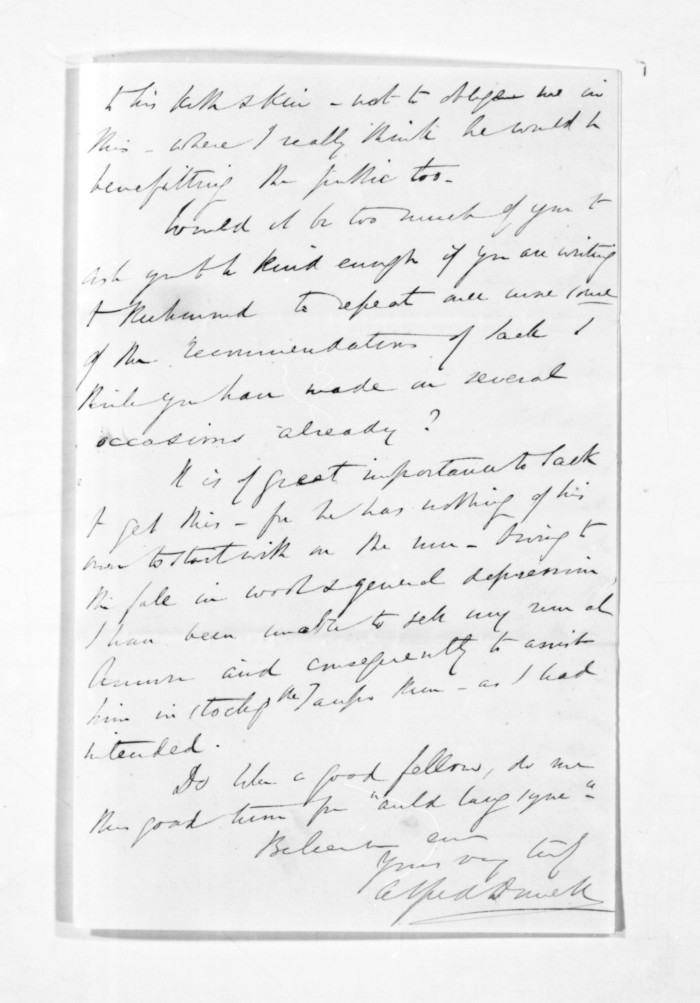 to his kith & kin – not to oblige me in
this – where I really think he would be
benefitting the public too –
Would it be too much of you to
ask you to be kind enough if you are writing
to Richmond to repeat once more some
of the recommendations of Jack I
think you have made on several
occasions already?
It is of great importance to Jack
to get this – for he has nothing of his
own to start with on the run – Owing to
the fall in wool & general depression,
I have been unable to sell my run at
and consequently to assist
him in stocking the Taupo Run – as I had
intended.
Do like a good fellow, do me
this good turn for "auld lang syne" –
Believe me ever
Yours very truly
Alfred